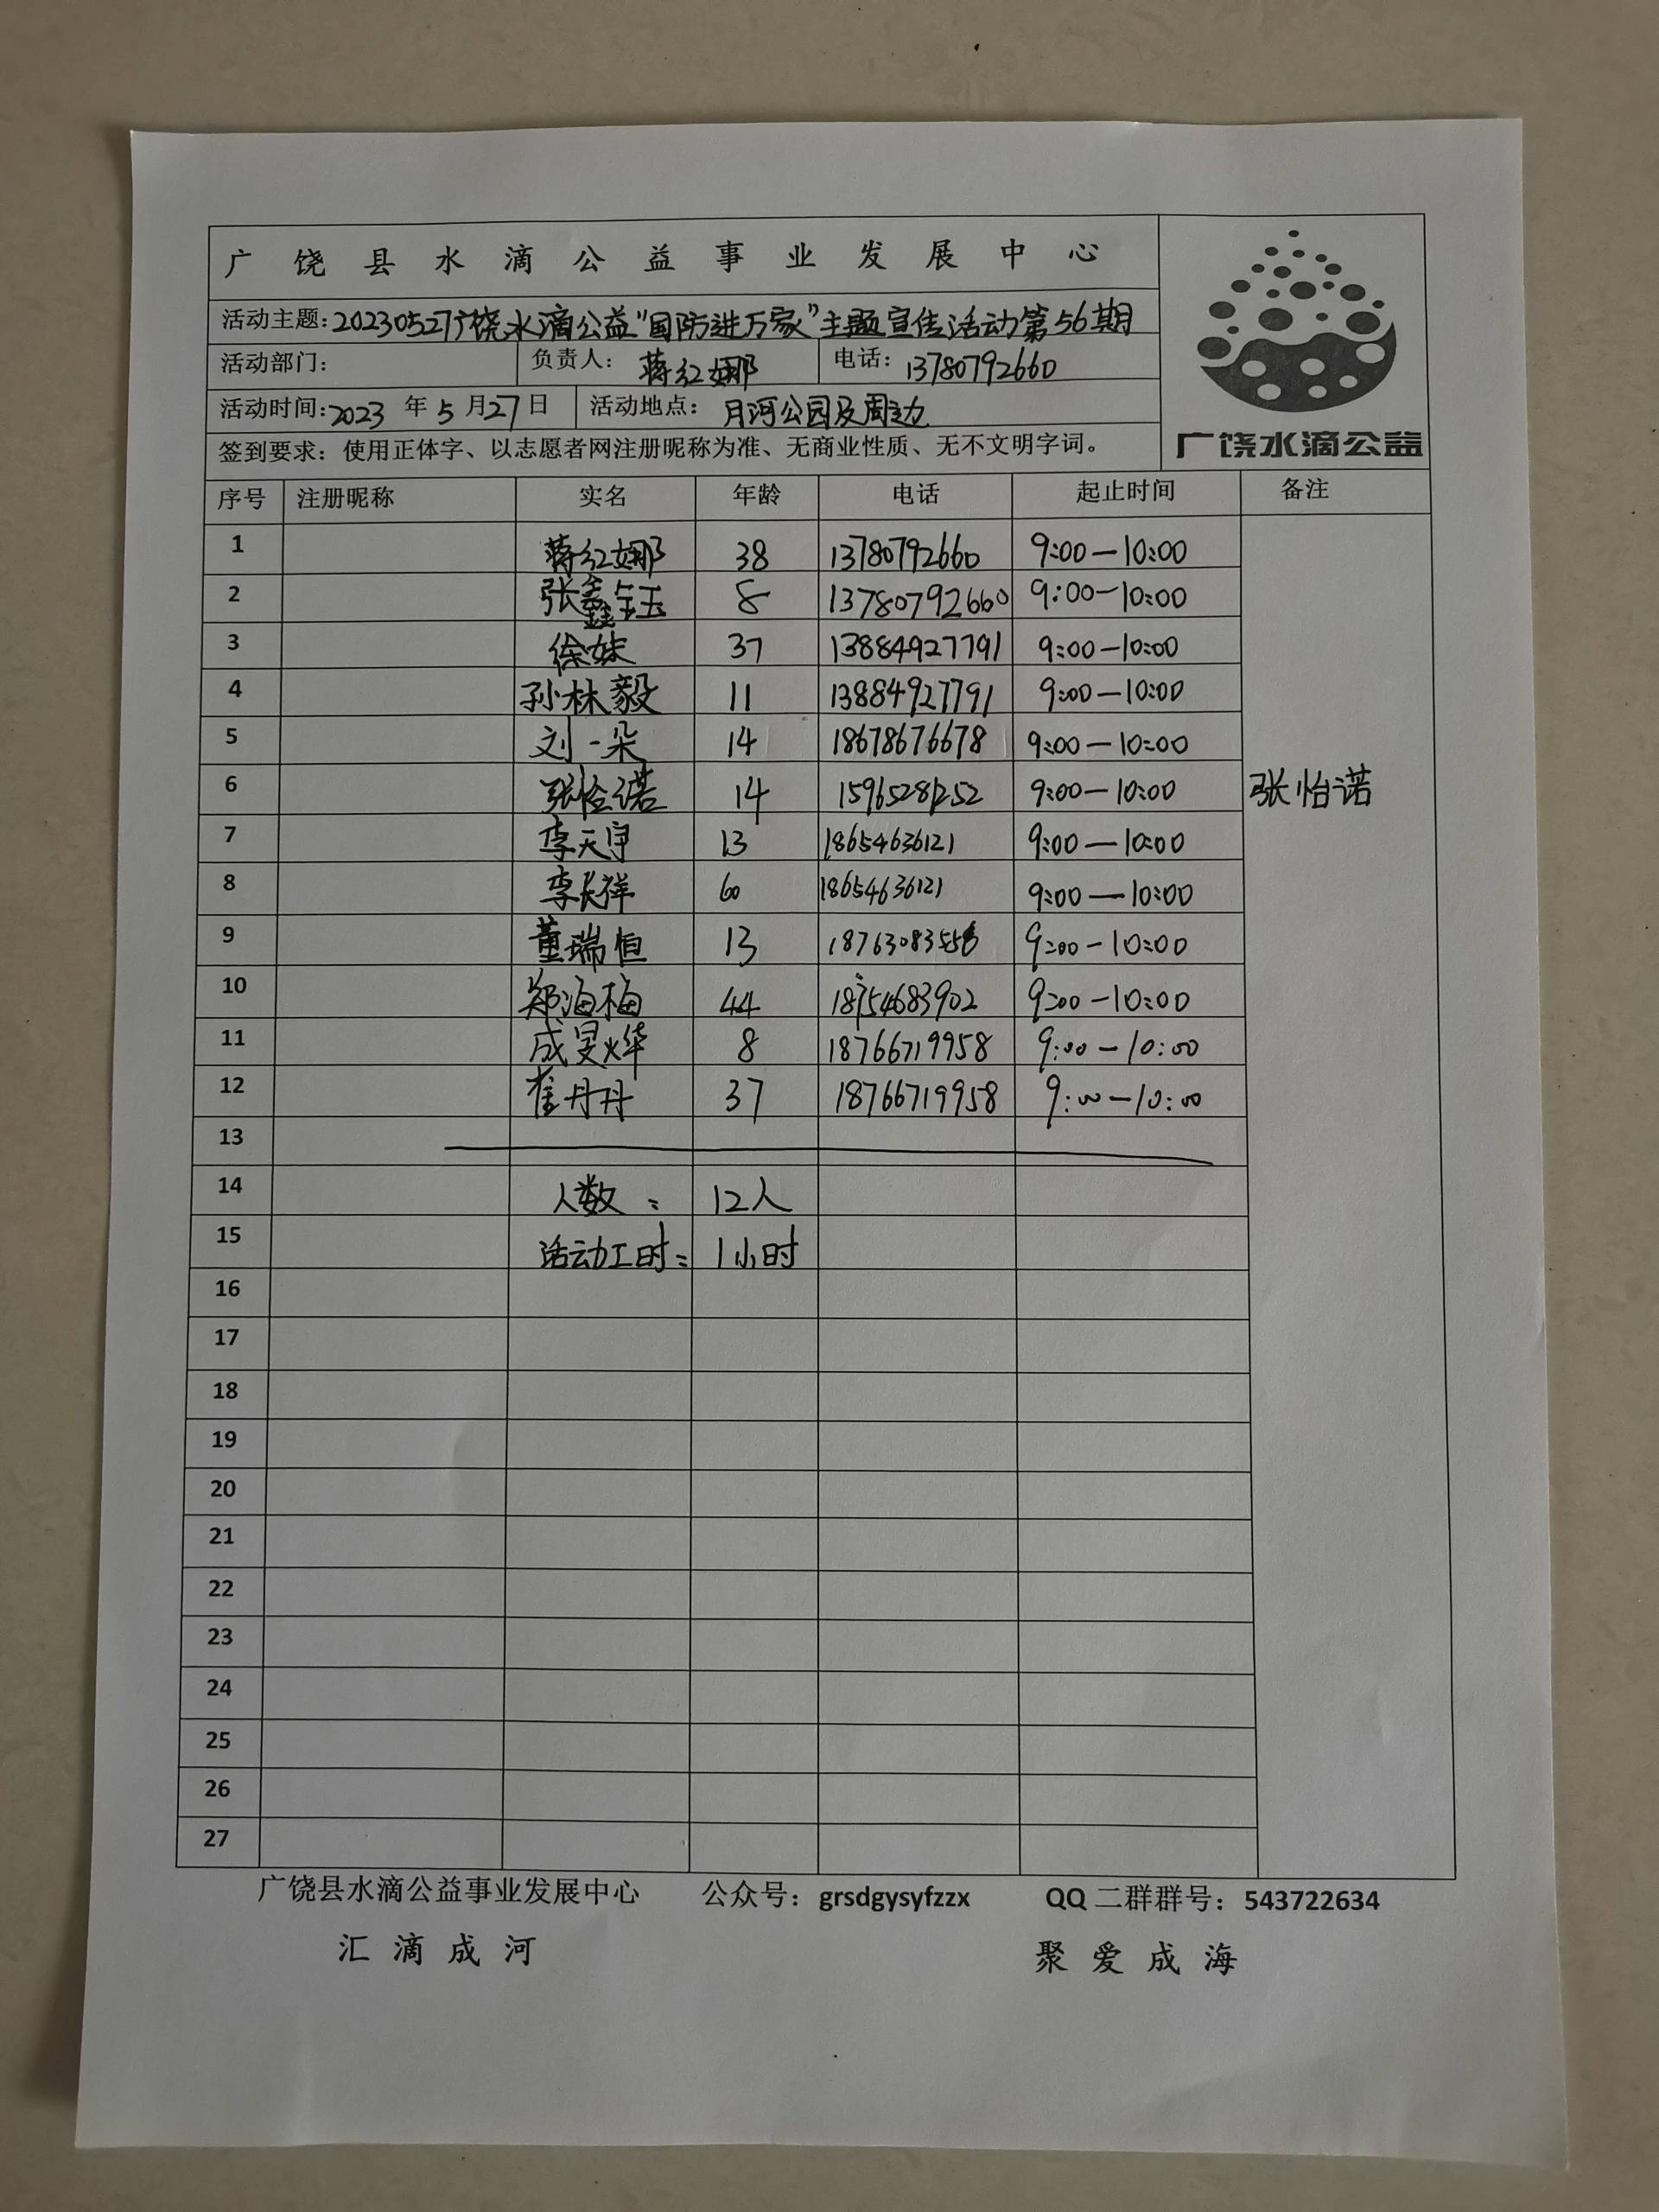 广饶县水滴公益事业发展中心
活动主题:20230527广饶水滴公益"国防进万家"主题宣传活动第56期
活动部门: 负责人: 蒋红娜 电话: 13780792660
活动时间:2023 年 5 月 27 日 活动地点: 月河公园及周边
签到要求: 使用正体字、以志愿者网注册昵称为准、无商业性质、无不文明字词。
广饶水滴公益
序号 注册昵称 实名 年龄 电话 起止时间 备注
1 蒋红娜 38 13780792660 9:00—10:00
2 张鑫钰 8 13780792660 9:00—10:00
3 徐妹 37 13884927791 9:00—10:00
4 孙林毅 11 13884927791 9:00—10:00
5 刘一朵 14 18678676678 9:00—10:00
6 张怡诺 14 15965281252 9:00—10:00 张怡诺
7 李天宇 13 18654636121 9:00—10:00
8 李长祥 60 18654636121 9:00—10:00
9 董瑞恒 13 9:00—10:00
10 郑海梅 44 18754683902 9:00—10:00
11 成旻烨 8 18766719958 9:00—10:00
12 崔丹丹 37 18766719958 9:00—10:00
13
14 人数: 12人
15 活动工时: 1小时
16
17
18
19
20
21
22
23
24
25
26
27
广饶县水滴公益事业发展中心 公众号: grsdgysyfzzx QQ 二群群号: 543722634
汇滴成河 聚爱成海